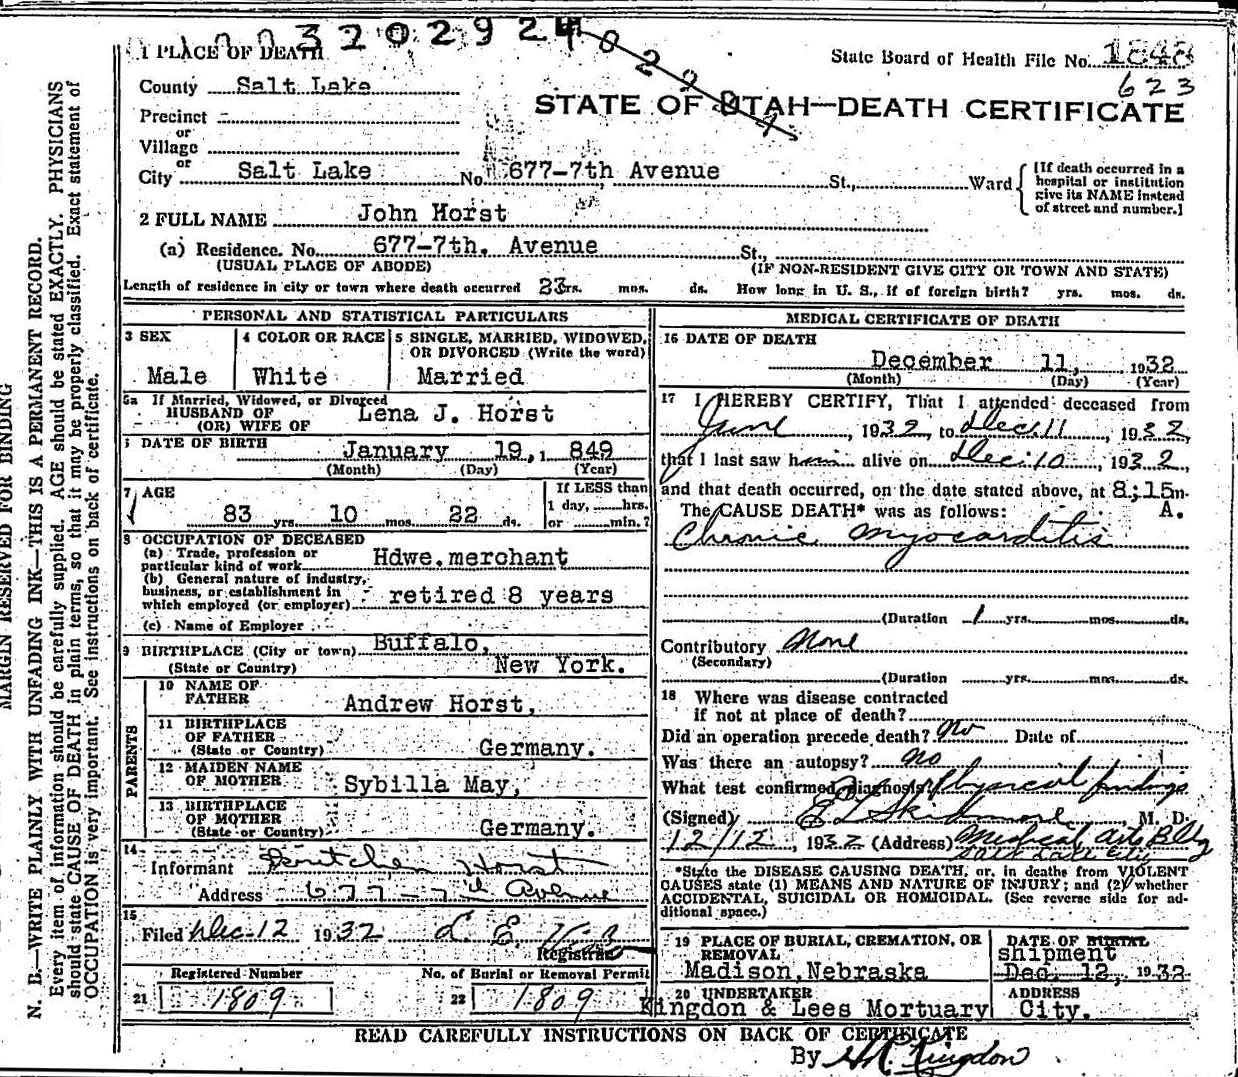 3202924
0229
1 PLACE OF DEATH
State Board of Health File No. 1848
623
County Salt Lake
STATE OF UTAH—DEATH CERTIFICATE
Precinct
or
Village
or
City Salt Lake No. 677-7th Avenue St., Ward
[If death occurred in a hospital or institution give its NAME instead of street and number.]
2 FULL NAME John Horst
(a) Residence. No. 677-7th. Avenue St.,
(USUAL PLACE OF ABODE) (IF NON-RESIDENT GIVE CITY OR TOWN AND STATE)
Length of residence in city or town where death occurred 23 yrs. mos. ds. How long in U. S., if of foreign birth? yrs. mos. ds.
PERSONAL AND STATISTICAL PARTICULARS
3 SEX 4 COLOR OR RACE 5 SINGLE, MARRIED, WIDOWED, OR DIVORCED (Write the word)
Male White Married
5a If Married, Widowed, or Divorced
HUSBAND OF Lena J. Horst
(OR) WIFE OF
6 DATE OF BIRTH
January 19, 1849
(Month) (Day) (Year)
7 AGE If LESS than
1 day, hrs.
83 yrs. 10 mos. 22 ds. or min.?
8 OCCUPATION OF DECEASED
(a) Trade, profession or
particular kind of work Hdwe.merchant
(b) General nature of industry,
business, or establishment in
which employed (or employer) retired 8 years
(c) Name of Employer
9 BIRTHPLACE (City or town) Buffalo,
(State or Country) New York.
PARENTS
10 NAME OF
FATHER Andrew Horst,
11 BIRTHPLACE
OF FATHER
(State or Country) Germany.
12 MAIDEN NAME
OF MOTHER Sybilla May,
13 BIRTHPLACE
OF MOTHER
(State or Country) Germany.
14
Informant Horst
Address 677-7th Avenue
15
Filed Dec-12 1932 L. E.
Registrar
Registered Number No. of Burial or Removal Permit
21 1809 22 1809
MEDICAL CERTIFICATE OF DEATH
16 DATE OF DEATH
December 11, 1932
(Month) (Day) (Year)
17 I HEREBY CERTIFY, That I attended deceased from
June, 1932, to Dec. 11, 1932,
that I last saw him alive on Dec. 10, 1932,
and that death occurred, on the date stated above, at 8:15 m.
The CAUSE DEATH* was as follows: A.
Chronic Myocarditis
(Duration 1 yrs. mos. ds.
Contributory None
(Secondary)
(Duration yrs. mos. ds.
18 Where was disease contracted
if not at place of death?
Did an operation precede death? no Date of
Was there an autopsy? no
What test confirmed diagnosis? Physical findings
(Signed) E L Skidmore, M. D.
12/12, 1932 (Address) Medical Arts Bldg
Salt Lake City
*State the DISEASE CAUSING DEATH, or, in deaths from VIOLENT
CAUSES state (1) MEANS AND NATURE OF INJURY; and (2) whether
ACCIDENTAL, SUICIDAL OR HOMICIDAL. (See reverse side for ad-
ditional space.)
19 PLACE OF BURIAL, CREMATION, OR REMOVAL
Madison, Nebraska
DATE OF BURIAL
shipment
Dec. 12, 1932
20 UNDERTAKER ADDRESS
Kingdon & Lees Mortuary City.
READ CAREFULLY INSTRUCTIONS ON BACK OF CERTIFICATE
By Kingdon
MARGIN RESERVED FOR BINDING
N. B.—WRITE PLAINLY WITH UNFADING INK—THIS IS A PERMANENT RECORD.
Every item of information should be carefully supplied. AGE should be stated EXACTLY. PHYSICIANS
should state CAUSE OF DEATH in plain terms, so that it may be properly classified. Exact statement of
OCCUPATION is very important. See instructions on back of certificate.